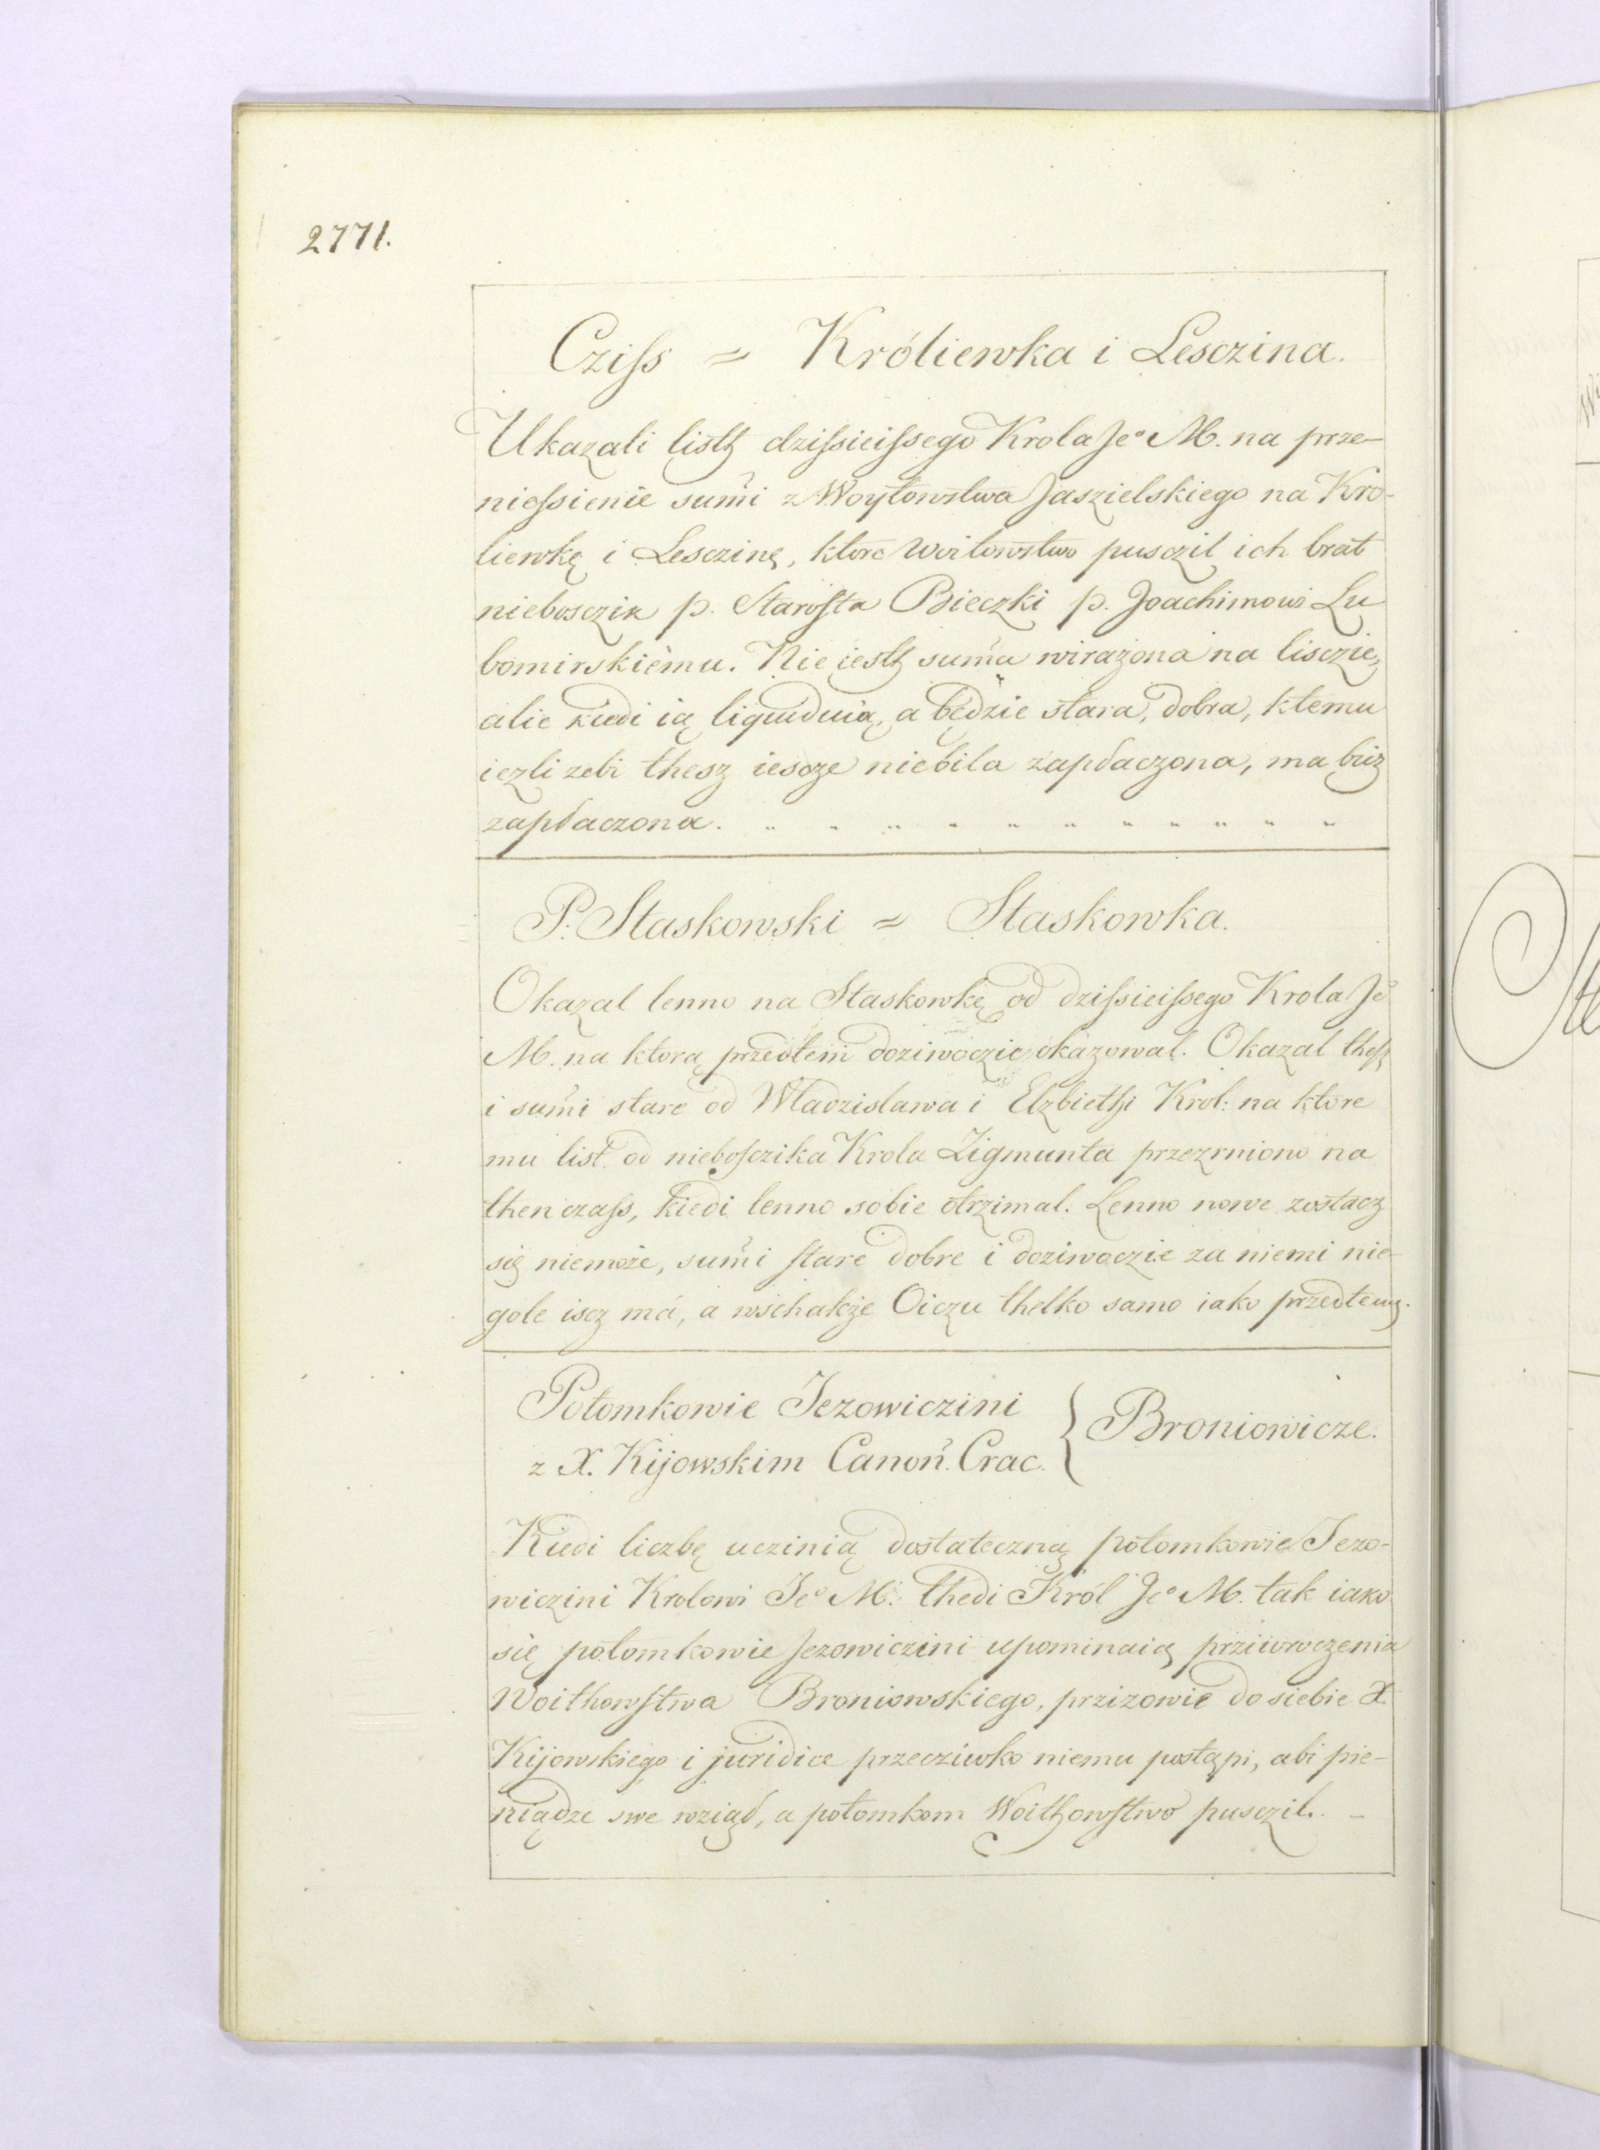 2771.
Cziſs = Króliewka i Lesczina.
Ukazali listÿ dziſsieiſsego Krola Je° M. na prze-
nieſsienie sum̃i z Woytowstwa Jaszielskiego na Kro-
liewkę i Lesczinę, ktore Woitowstwo pusczil ich brat
niebosczik p. Staroſta Bieczki p. Joachimowi Lu
bomirskiemu. Nie iestÿ sum̃a wirażona na lisczie,
alie kiedi ią liquiduią, a będzie stara, dobra, ktemu
iezli zebi thesz iescze niebila zapłaczona, ma bicz
zapłaczona.
P. Staskowski = Staskowka.
Okazal lenno na Staskowkę od dziſsieiſsego Krola Je°
M. na ktorą przedtem doziwoczie okazowal. Okazal theſz
i sum̃i stare od Władzislawa i Elzbiethi Krol: na ktore
mu list od nieboſczika Krola Zigmunta przezrniono na
then czaſs, kiedi lenno sobie otrzimal. Lenno nowe zostacz
się niemoże, sum̃i ſtare dobre i doziwoczie za niemi nie-
gole iscz má, a wschakże Oiczu thelko samo iako przedtem.
Potomkowie Jezowiczini
z X. Kijowskim Canoñ. Crac. } Broniowicze.
Kiedi liczbę uczinią dostateczną potomkowie Jezo-
wiczini Krolowi Je° M. thedi Król Je° M. tak iako
się potomkowie Jezowiczini upominaią prziwroczenia
Woithowſtwa Broniowskiego, przizowie do siebie X.
Kijowskiego i juridice przecziwko niemu postąpi, abi pie-
niądze swe wziął, a potomkom Woithowſtwo pusczil. -